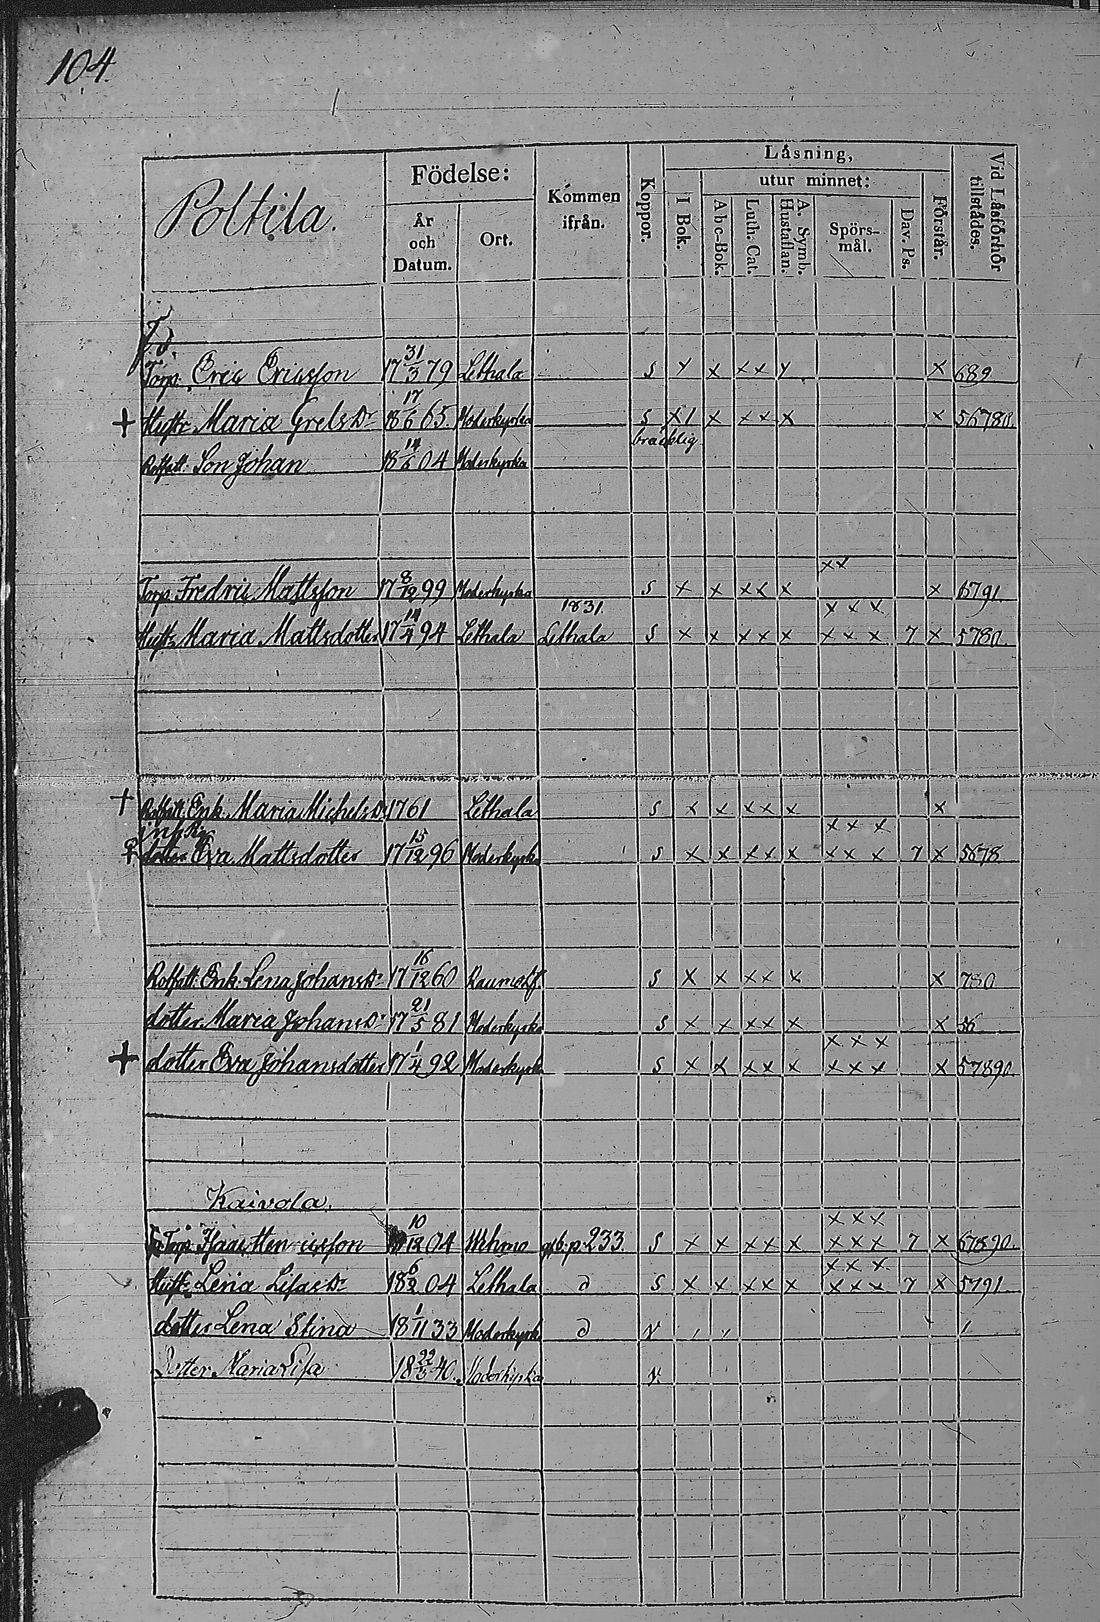 104
Poltila.
Födelse:
År och Datum.
Ort.
Kommen ifrån.
Koppor.
Läsning,
I Bok.
utur minnet:
Abc-Bok.
Luth. Cat.
A. Symb. Hustaflan.
Spörs-mål.
Dav. Ps.
Förstår.
Vid Läsförhör tillstädes.
f.d.
Torp. Eric Ericsson 17 31/3 79 Lethala S x x x x x x 689
+ Hustr. Maria Grels Dr 65 Moderkyrka S x 1 x x x x x 56780.
bräcklig
Rotfatt. Son Johan 04 Moderkyrka
x x
Torp. Fredric Mattsson 17 8/12 99 Moderkyrka S x x x x x x 6791.
1831. x x x
Hustr. Maria Mattsdotter 17 94 Lethala Lethala S x x x x x x x x 7 x 5780.
+ Rotfatt. Enk. Maria Michels Dr 1761 Lethala S x x x x x x
x x x
dotter Eva Mattsdotter 17 15/12 96 Moderkyrka S x x x x x x x x 7 x 5678
Rotfatt. Enk. Lena Johans Dr 17 16/12 60 S x x x x x x 780
dotter Maria Johans Dr 17 21/5 81 Moderkyrka S x x x x x x 56
x x x
+ dotter Eva Johansdotter 17 1/4 92 Moderkyrka S x x x x x x x x x 57890.
Kaivola.
x x x
Torp. 10/12 04 Wehmo p. 233. S x x x x x x x x 7 x 67890.
x x x
Hustr. Lena Lisas Dr 18 6/2 04 Lethala d S x x x x x x x x 7 x 5791
dotter Lena Stina 18 1/11 33 Moderkyrk d v
Dotter Maria Lisa 18 40. Moderkyrka v